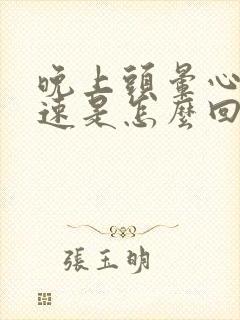 晚上頭暈心
速是怎麼回
張玉明